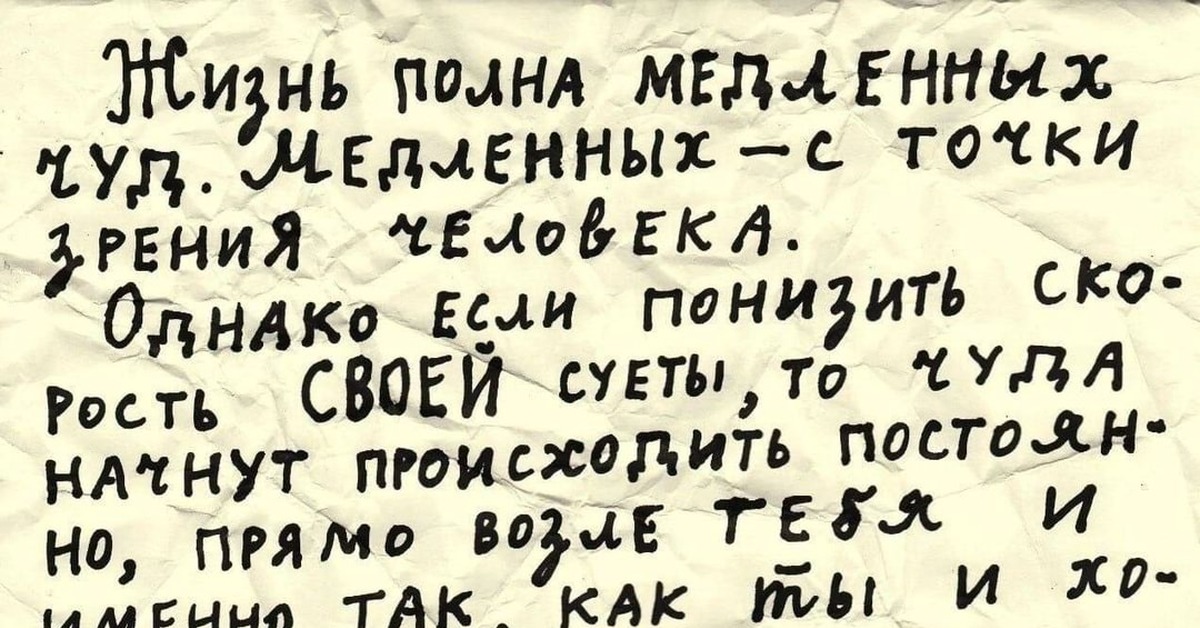 Жизнь полна медленных
чуд. Медленных – с точки
зрения человека.
Однако если понизить ско-
рость СВОЕЙ суеты, то чуда
начнут происходить постоян-
но, прямо возле тебя и
именно так, как ты и хо-